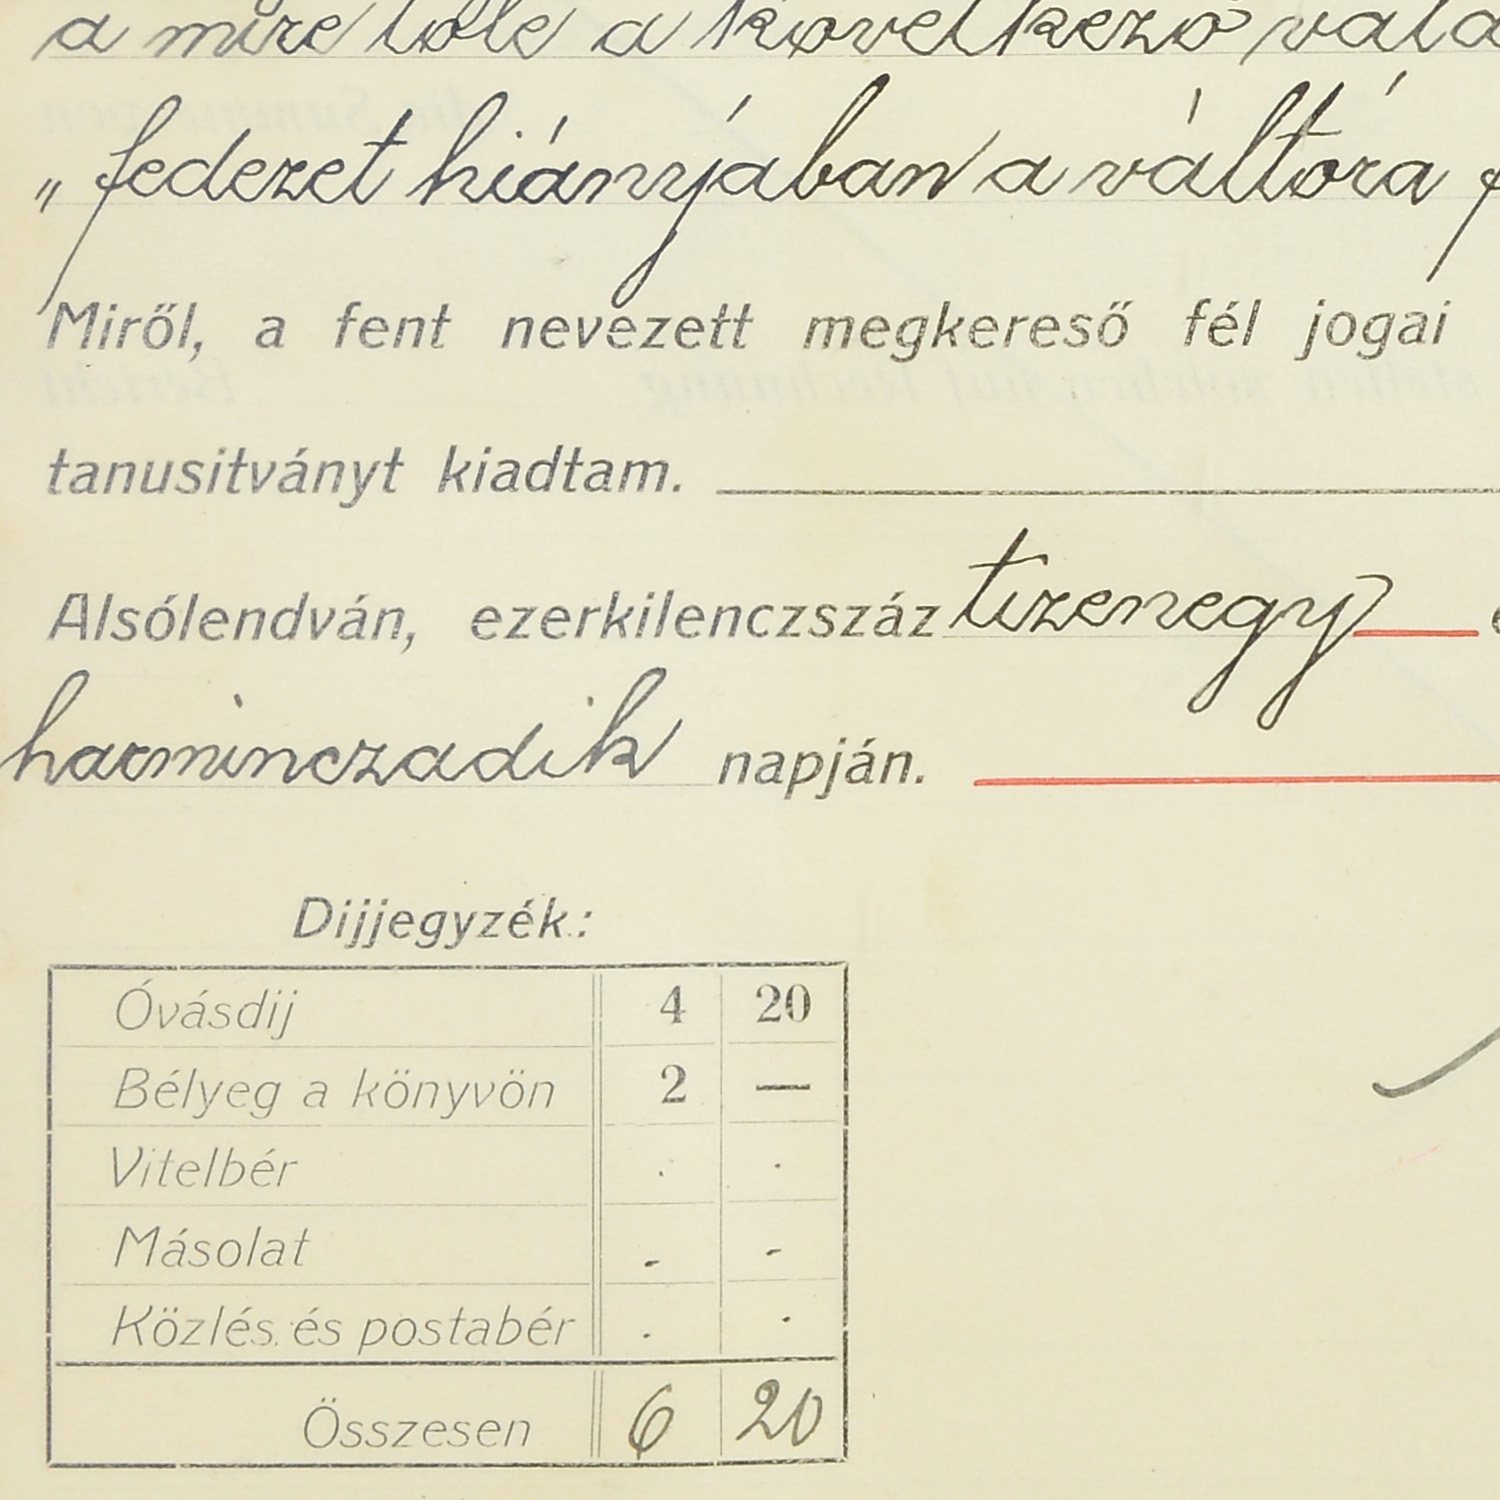 a mire tőle a következő vála
„fedezet hiányjában a váltóra f
Miről, a fent nevezett megkereső fél jogai
tanusitványt kiadtam.
Alsólendván, ezerkilenczszáz tizenegy
harminczadik napján.
Dijjegyzék:
Óvásdij 4 20
Bélyeg a könyvön 2 —
Vitelbér . .
Másolat - -
Közlés és postabér . .
Összesen 6 20